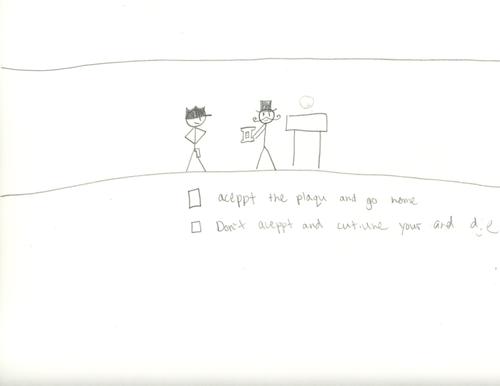 aceppt the plaqu and go home
Don't aceppt and cutiune your and die